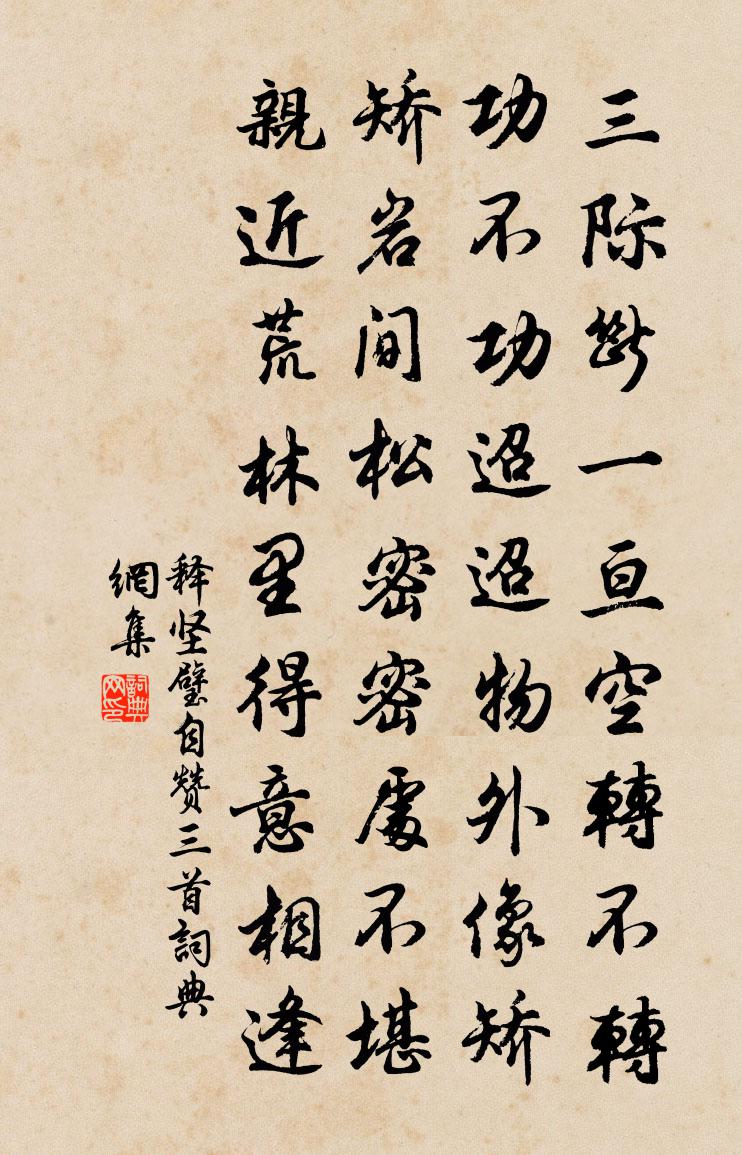 三際斷一亘空轉不轉
功不功迢迢物外像矫
矫岩间松密密處不堪
親近荒林里得意相逢
释坚璧自赞三首詞典
網集
詞典
网印